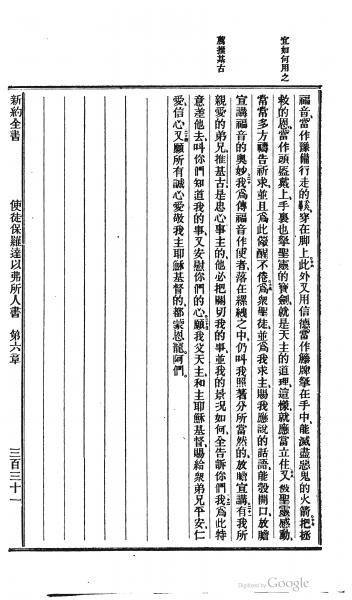 宜如何用之
薦推基古
福音、當作豫備行走的鞋、穿在脚上、此外又用信德當作籐牌、拏在手中、能滅盡惡鬼的火箭、把拯
救的恩、當作頭盔戴上、手裏也拏聖靈的寶劍、就是天主的道理、這樣、就應當立住、又被聖靈感動、
常常多方禱告祈求、並且爲此儆醒不倦、爲衆聖徒、並爲我求主、賜我應說的話語、能彀開口、放膽
宣講福音的奧妙、我爲傳福音作使者、落在縲絏之中、仍叫我照著分所當然的、放膽宣講、有我所
親愛的弟兄推基古、是忠心事主的、他必把關切我的事、並我的景况如何、全告訴你們、我爲此特
意差他去、叫你們知道我的事、又安慰你們的心、願我父天主、和主耶穌基督、賜給衆弟兄平安仁
愛、信心、又願所有誠心愛敬我主耶穌基督的、都蒙恩寵、阿們。
新約全書 使徒保羅達以弗所人書 第六章 三百三十一
Digitized by Google